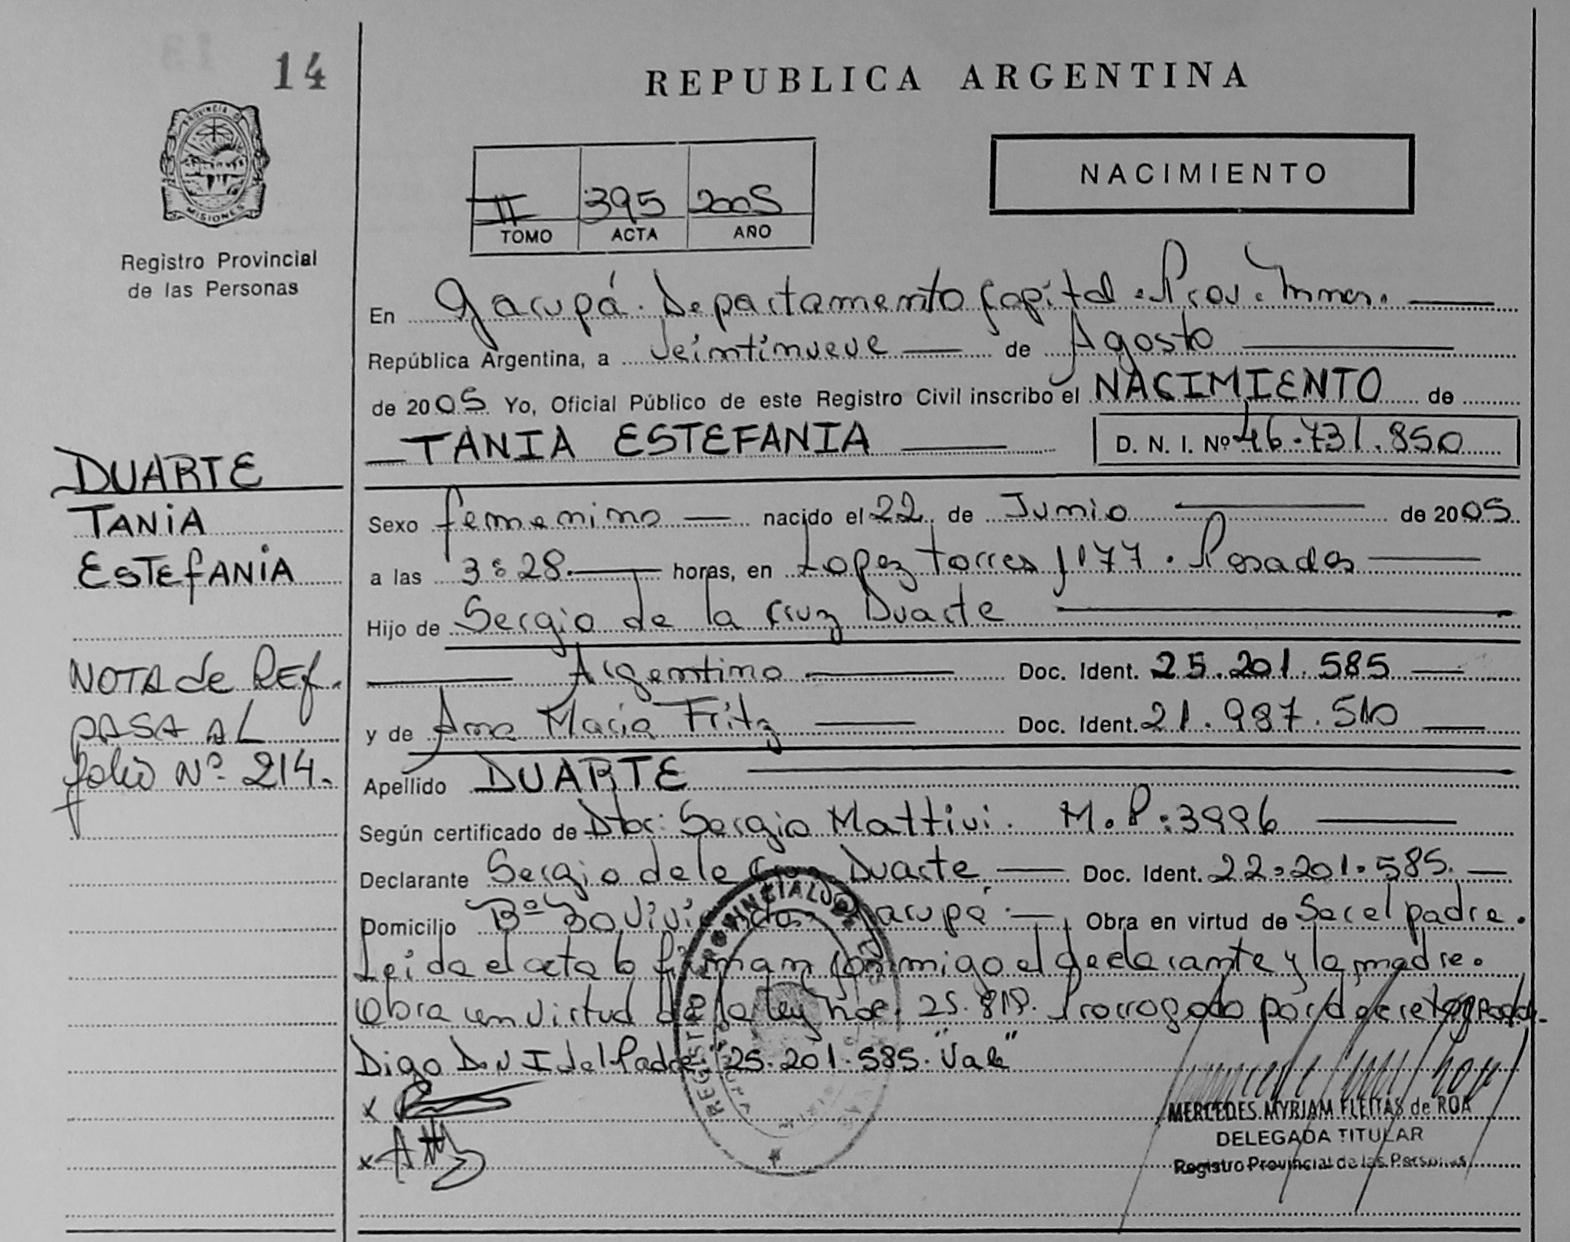 14
REPUBLICA ARGENTINA
PROVINCIA DE
MISIONES
Registro Provincial
de las Personas
NACIMIENTO
II 395 2005
TOMO ACTA AÑO
En Garupá. Departamento Capital. Prov. Mnes.
República Argentina, a veintinueve de Agosto
de 2005 Yo, Oficial Público de este Registro Civil inscribo el NACIMIENTO de
TANIA ESTEFANIA D. N. I. Nº 46.731.850
DUARTE
TANIA
ESTEFANIA
Sexo femenino nacido el 22 de Junio de 2005
a las 3:28 horas, en Lopez torres 1177. Posadas
Hijo de Sergio de la Cruz Duarte
Argentino Doc. Ident. 25.201.585
y de Ana Maria Fritz Doc. Ident. 21.987.510
NOTA de REf.
PASA AL
folio Nº 214.
Apellido DUARTE
Según certificado de Dtor: Sergio Mattivi. M.P:3996
Declarante Sergio de la Cruz Duarte Doc. Ident. 22.201.585.
Domicilio Bº 30 Vivi Garupá Obra en virtud de Ser el padre.
Leida el acta la firman conmigo el declarante y la madre.
Obra en virtud de la ley Nro. 25.819. Prorrogado por decreto
Digo D.N.I del Padre "25.201.585. "Vale"
x
x
REGISTRO PROVINCIAL DE
MERCEDES MYRIAM FLEITAS de ROA
DELEGADA TITULAR
Registro Provincial de las Personas